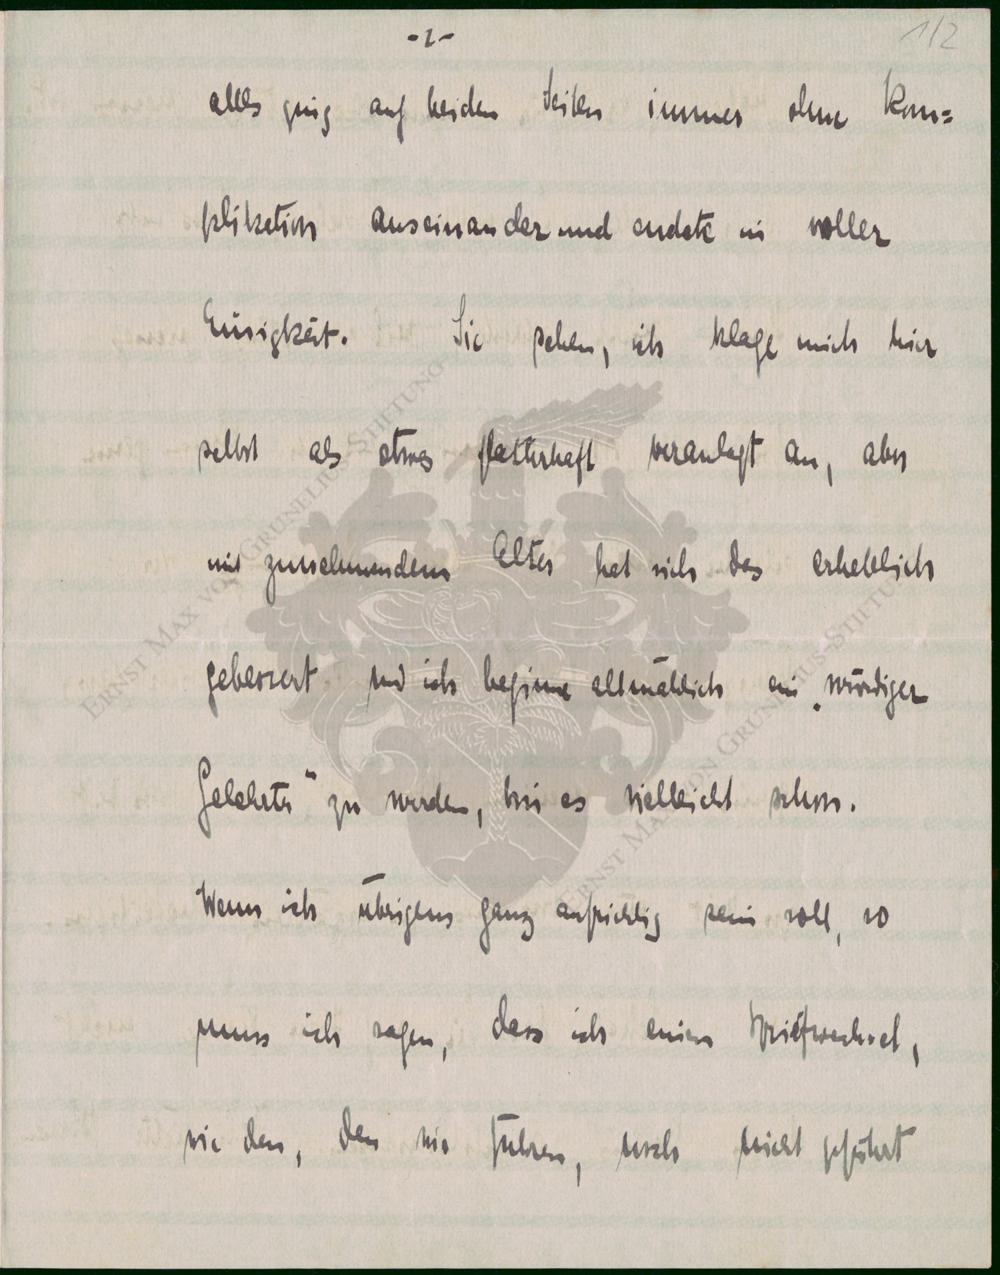 -2-
1/2
alles ging auf beiden Seiten immer ohne Kom=
plikation auseinander und endete in voller
Einigkeit. Sie sehen, ich klage mich hier
selbst als etwas flatterhaft veranlagt an, aber
mit zunehmendem Alter hat sich das erheblich
gebessert und ich beginne allmählich ein „würdiger
Gelehrter“ zu werden, bin es vielleicht schon.
Wenn ich übrigens ganz aufrichtig sein soll, so
muss ich sagen, dass ich einen Briefwechsel,
wie den, den wir führen, noch nicht geführt
ERNST MAX VON GRUNELIUS-STIFTUNG
ERNST MAX VON GRUNELIUS-STIFTUNG